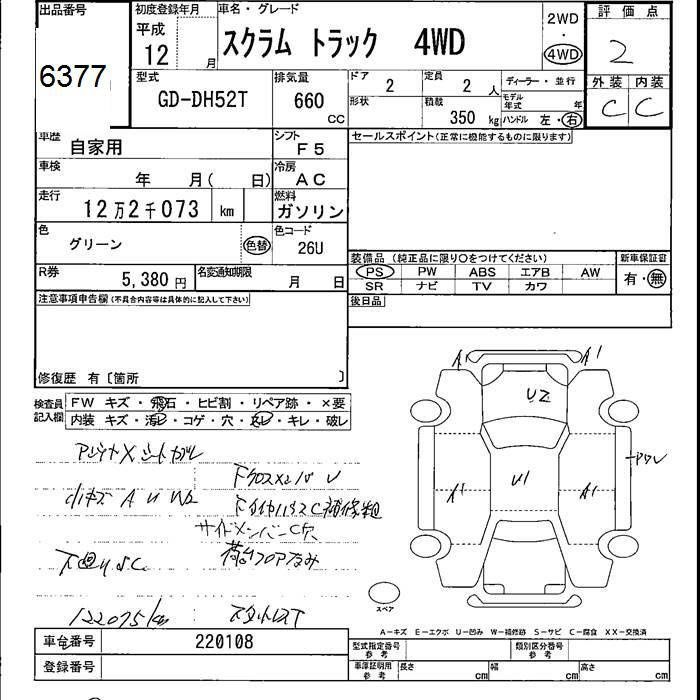 出品番号
6377
初度登録年月
平成
12 月
車名・グレード
スクラム トラック 4WD
2WD
・
4WD
評価点
2
外装 内装
C C
型式
GD-DH52T
排気量
660
CC
ドア
2
定員
2 人
ディーラー・並行
形状
積載
350 kg
モデル年式 年
ハンドル 左・右
車歴
自家用
シフト
F5
セールスポイント(正常に機能するものに限ります)
車検
年 月( 日)
冷房
AC
走行
12万2千073 km
燃料
ガソリン
色
グリーン
色替
色コード
26U
装備品(純正品に限り〇をつけてください)
新車保証書
PS PW ABS エアB AW
SR ナビ TV カワ
有・無
R券
5,380 円
名変通知期限
月 日
後日品
注意事項申告欄(不具合内容等は具体的に記入して下さい)
修復歴 有〔箇所 〕
検査員記入欄
FW キズ・飛石・ヒビ割・リペア跡・×要
内装 キズ・汚れ・コゲ・穴・スレ・キレ・破レ
小キズ A U W2
サイドメンバーC穴
下廻りS.C.
122075km
A1 A1
U2
U1
A1 A1
スペア
A－キズ E－エクボ U－凹み W－補修跡 S－サビ C－腐食 XX－交換済
車台番号
220108
登録番号
型式指定番号
参考
類別区分番号
参考
車庫証明用
参考
長さ cm
幅 cm
高さ cm